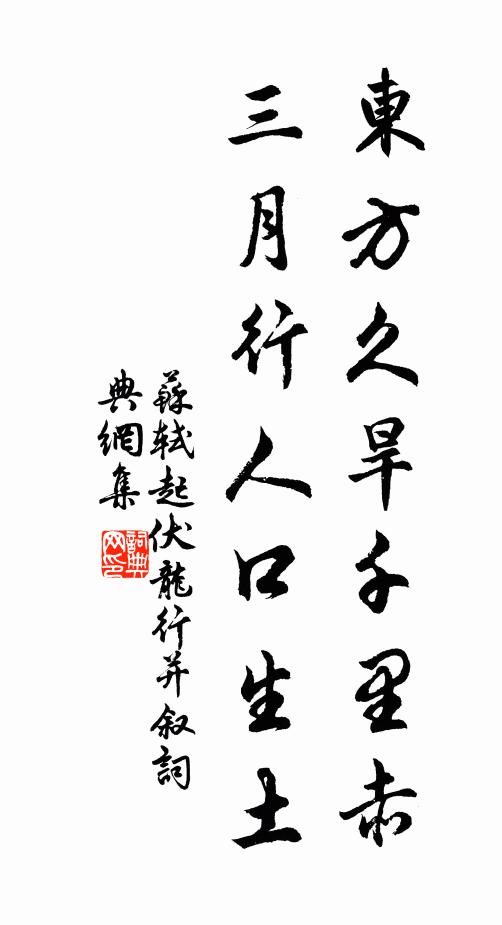 東方久旱千里赤
三月行人口生土
蘇軾起伏龍行并敘詞
典網集
詞典
网印